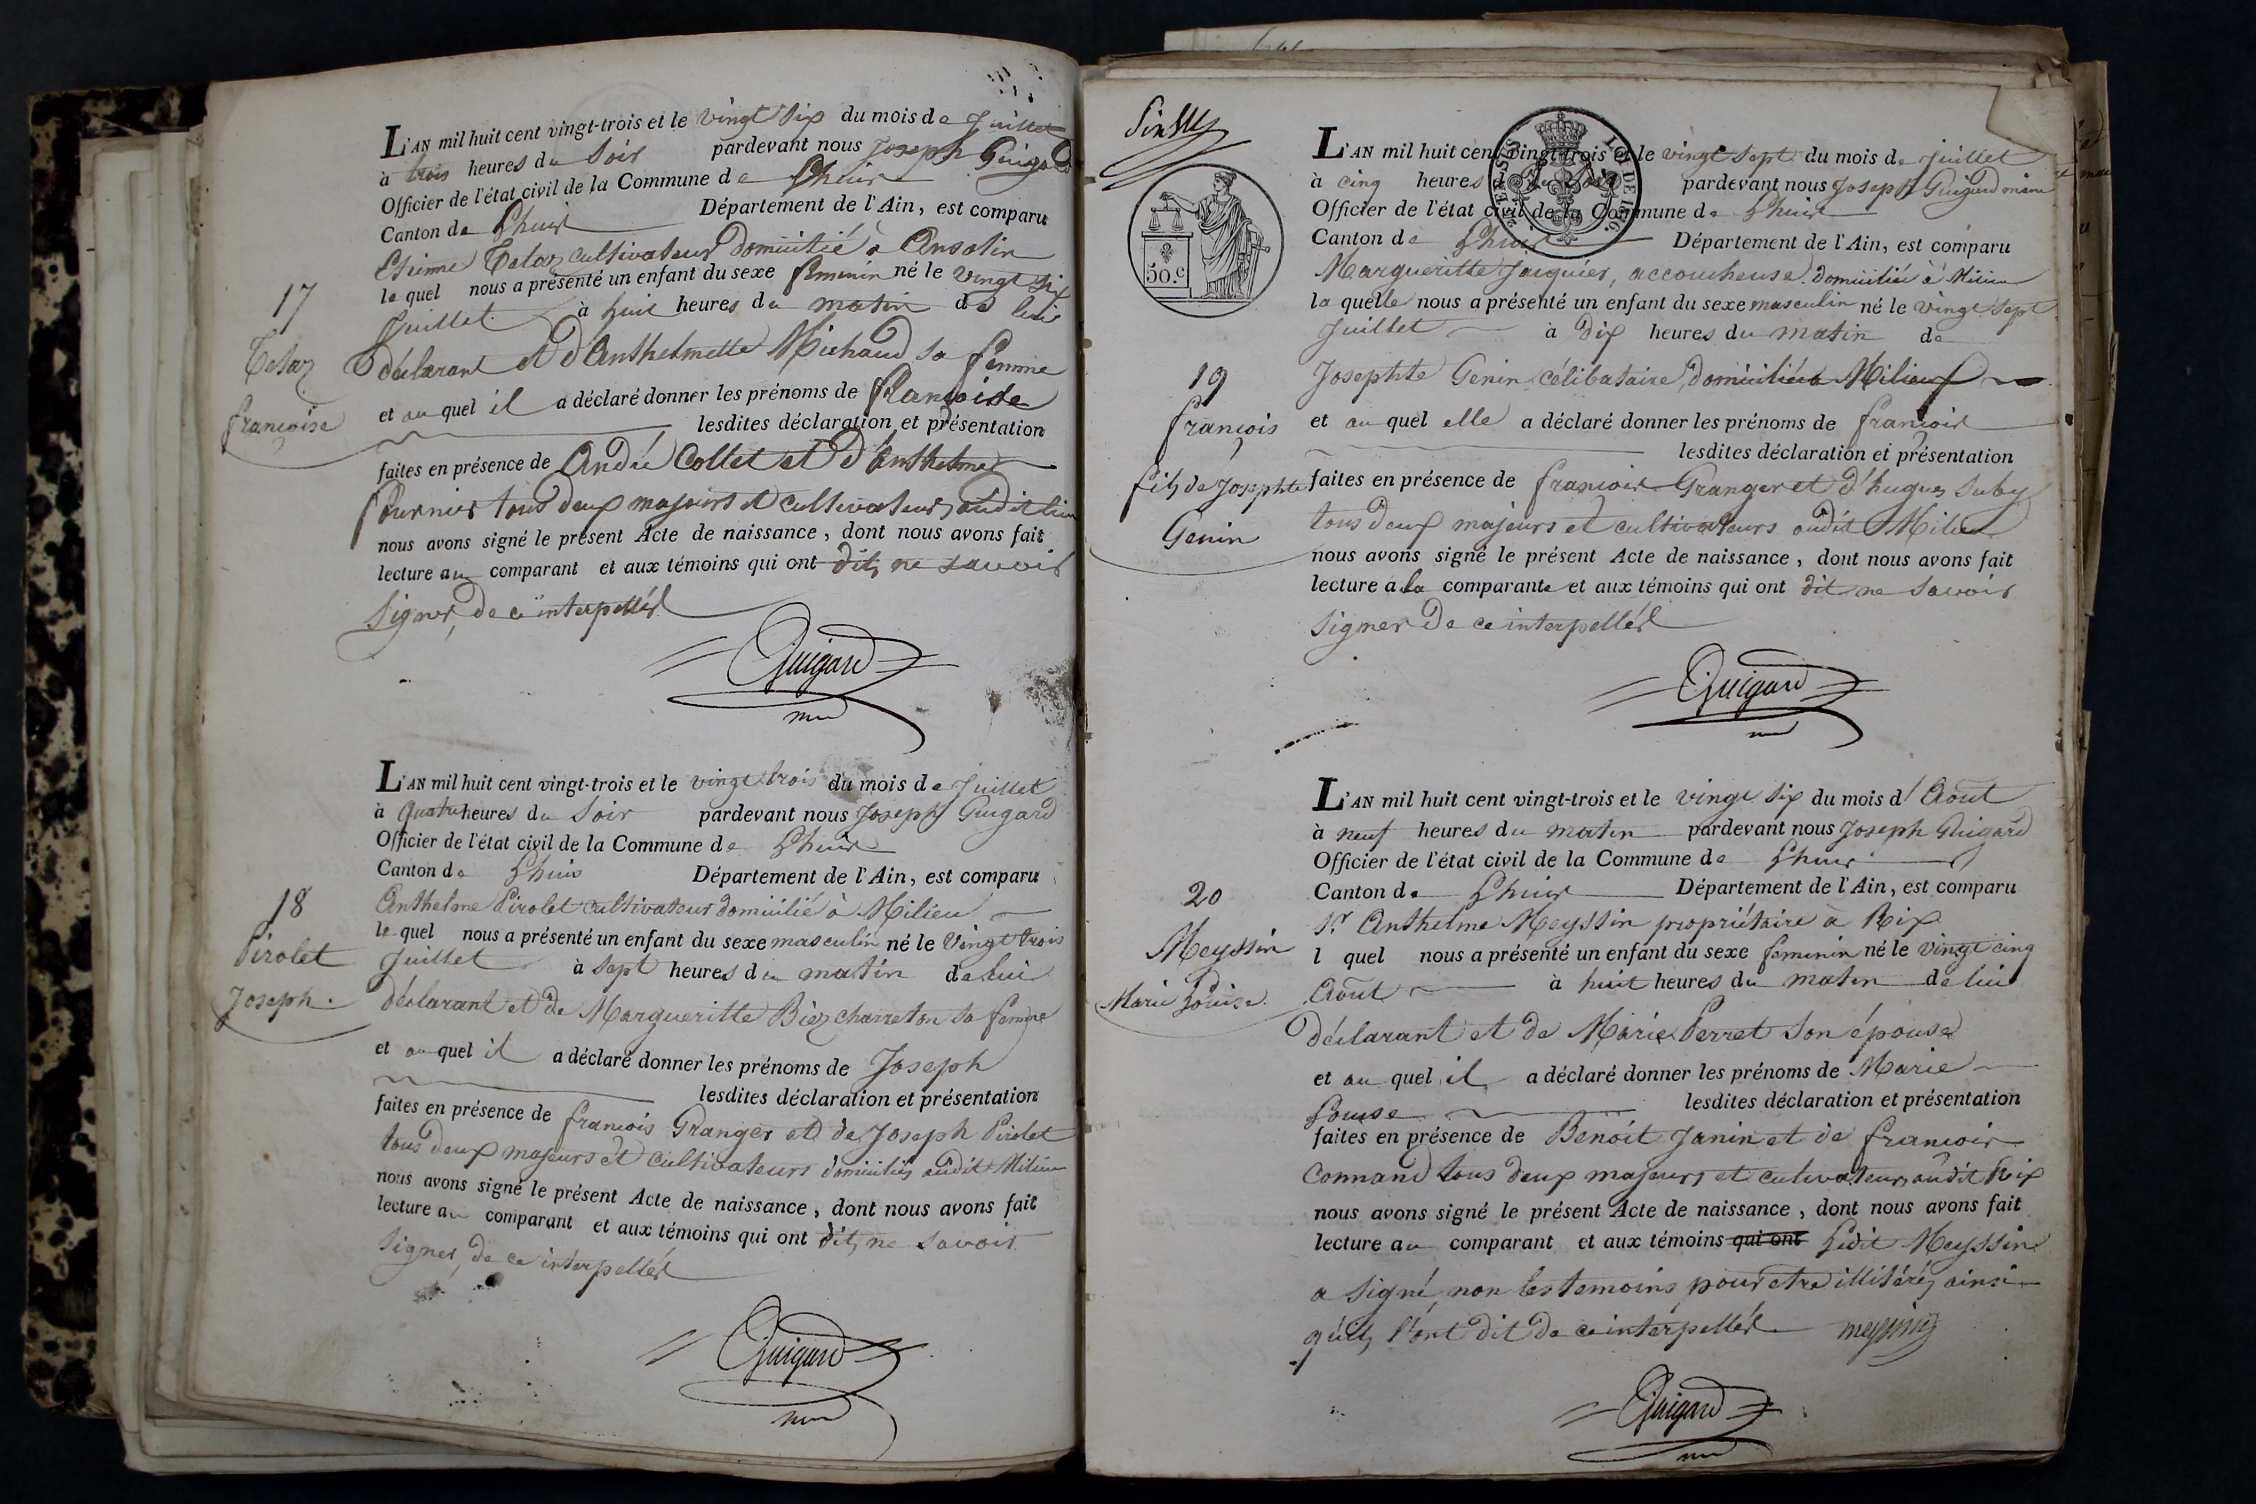 L'AN mil huit cent vingt-trois et le vingt six du mois de Juillet
à trois heures du Soir pardevant nous Joseph Guigard
Officier de l'état civil de la Commune de Lhuis
Canton de Lhuis Département de l'Ain, est comparu
Etienne Telaz cultivateur domicilié à Ansolin
le quel nous a présenté un enfant du sexe feminin né le vingt six
Juillet à huit heures du matin de lui
déclarant et d'Anthelmette Michaud sa femme
et au quel il a déclaré donner les prénoms de françoise
lesdites déclaration et présentation
faites en présence de André Collet et d'Anthelme
fournier tous deux majeurs et cultivateurs audit lieu
nous avons signé le présent Acte de naissance, dont nous avons fait
lecture au comparant et aux témoins qui ont dit ne savoir
signer, de ce interpellés
Guigard
17
Telaz
françoise
L'AN mil huit cent vingt-trois et le vingt trois du mois de Juillet
à quatre heures du Soir pardevant nous Joseph Guigard
Officier de l'état civil de la Commune de Lhuis
Canton de Lhuis Département de l'Ain, est comparu
Anthelme Pirolet cultivateur domicilié à Milieu
le quel nous a présenté un enfant du sexe masculin né le vingt trois
Juillet à sept heures du matin de lui
déclarant et de Margueritte Biez charreton sa femme
et au quel il a déclaré donner les prénoms de Joseph
lesdites déclaration et présentation
faites en présence de françois Granger et de Joseph Pirolet
tous deux majeurs et cultivateurs domiciliés audit Milieu
nous avons signé le présent Acte de naissance, dont nous avons fait
lecture au comparant et aux témoins qui ont dit ne savoir
signer, de ce interpellés
Guigard
18
Pirolet
Joseph.
50.c
LOI DE 1816.
L'AN mil huit cent vingt-trois et le vingt sept du mois de juillet
à cinq heures du Soir pardevant nous Joseph Guigard maire
Officier de l'état civil de la Commune de Lhuis
Canton de Lhuis Département de l'Ain, est comparu
Margueritte Jacquier, accoucheuse domiciliée à Milieu
la quelle nous a présenté un enfant du sexe masculin né le vingt sept
Juillet à dix heures du matin de
Josephte Genin célibataire, domiciliée à Milieu
et au quel elle a déclaré donner les prénoms de françois
lesdites déclaration et présentation
faites en présence de françois Granger et d'hugues
tous deux majeurs et cultivateurs audit Milieu
nous avons signé le présent Acte de naissance, dont nous avons fait
lecture à la comparante et aux témoins qui ont dit ne savoir
signer de ce interpellés
Guigard
19
françois
fils de Josephte
Genin
L'AN mil huit cent vingt-trois et le vingt six du mois d'Août
à neuf heures du matin pardevant nous Joseph Guigard
Officier de l'état civil de la Commune de Lhuis
Canton de Lhuis Département de l'Ain, est comparu
Sr Anthelme Meyssin propriétaire à Rix
l quel nous a présenté un enfant du sexe feminin né le vingt cinq
Août à huit heures du matin de lui
déclarant et de Marie Perret son épouse
et au quel il a déclaré donner les prénoms de Marie
Louise lesdites déclaration et présentation
faites en présence de Benoit Janin et de françois
Connand tous deux majeurs et cultivateurs audit Rix
nous avons signé le présent Acte de naissance, dont nous avons fait
lecture au comparant et aux témoins qui ont Ledit Meyssin
a signé, non les temoins pour etre illitérés ainsi
qu'ils l'ont dit de ce interpellés meyssin
Guigard
20
Meyssin
Marie Louise.